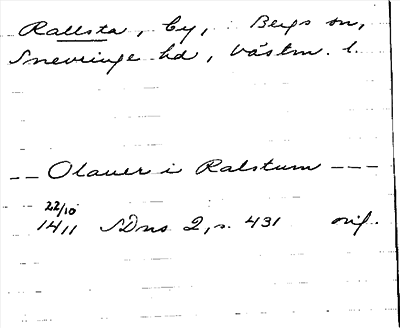 Rallsta, by, Bergs sn,
Snevringe hd, Västm. l.
-- Olauer i Ralstum ---
22/10
1411 SDns 2, s. 431 orig.